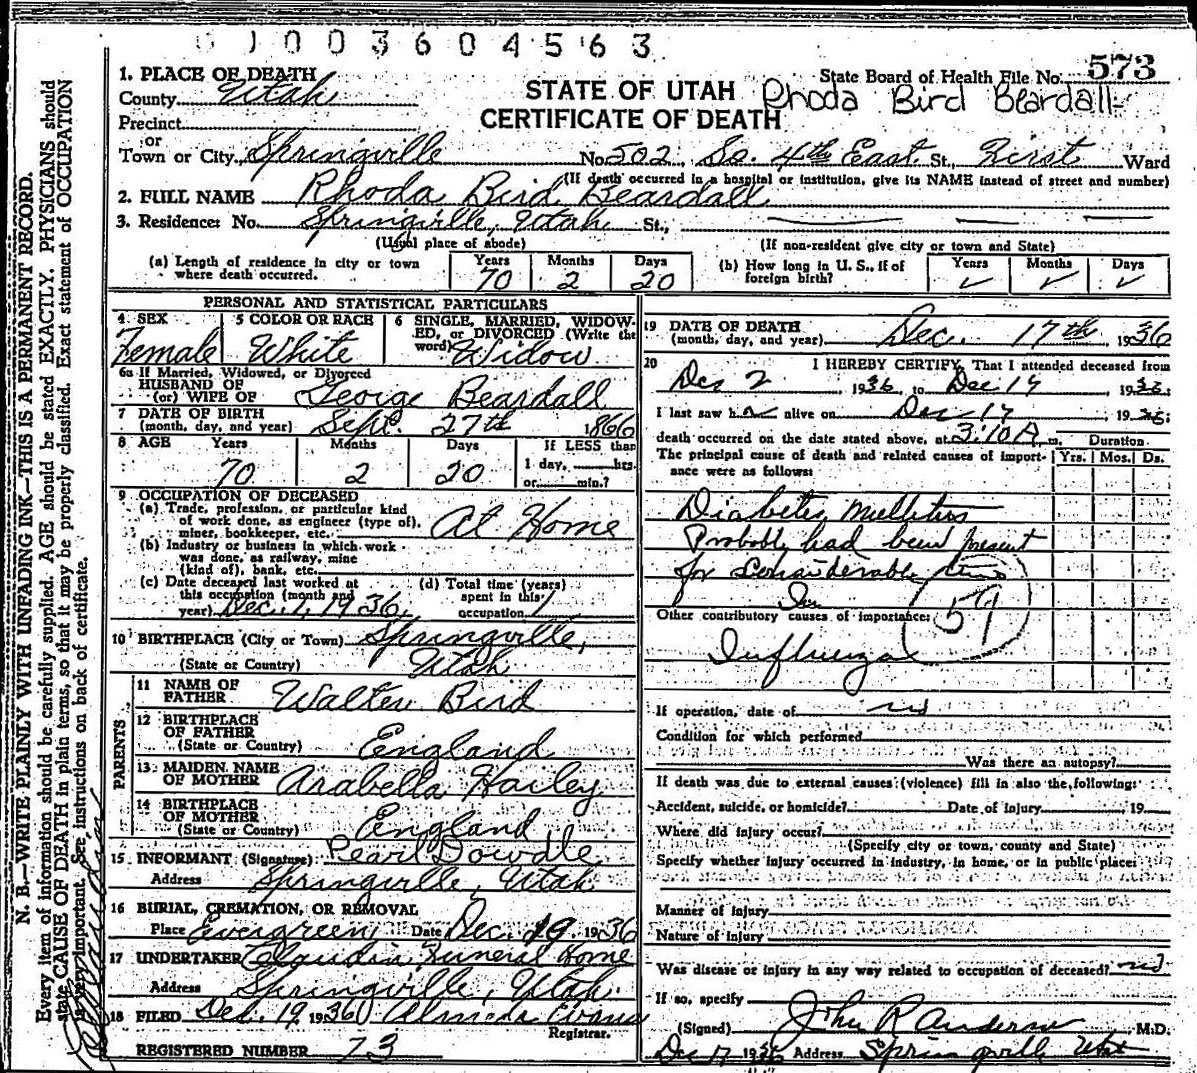 003604563
573
1. PLACE OF DEATH
County Utah
STATE OF UTAH
State Board of Health File No.
Rhoda Bird Beardall
CERTIFICATE OF DEATH
Precinct
or
Town or City Springville No. 502 So. 4th East St., First Ward
(If death occurred in a hospital or institution, give its NAME instead of street and number)
2. FULL NAME Rhoda Bird Beardall
3. Residence: No. Springville, Utah St.,
(Usual place of abode) (If non-resident give city or town and State)
(a) Length of residence in city or town where death occurred. Years 70 Months 2 Days 20
(b) How long in U. S., if of foreign birth? Years ✓ Months ✓ Days ✓
PERSONAL AND STATISTICAL PARTICULARS
4 SEX Female
5 COLOR OR RACE White
6 SINGLE, MARRIED, WIDOWED, or DIVORCED (Write the word) Widow
6a If Married, Widowed, or Divorced
HUSBAND OF
(or) WIFE OF George Beardall
7 DATE OF BIRTH
(month, day, and year) Sept. 27th 1866
8 AGE Years 70 Months 2 Days 20
If LESS than
1 day, hrs.
or min.?
9 OCCUPATION OF DECEASED
(a) Trade, profession, or particular kind
of work done, as engineer (type of),
miner, bookkeeper, etc. At Home
(b) Industry or business in which work
was done, as railway, mine
(kind of), bank, etc.
(c) Date deceased last worked at
this occupation (month and
year) Dec. 1, 1936
(d) Total time (years)
spent in this
occupation
10 BIRTHPLACE (City or Town) Springville,
(State or Country) Utah
PARENTS
11 NAME OF
FATHER Walter Bird
12 BIRTHPLACE
OF FATHER
(State or Country) England
13 MAIDEN NAME
OF MOTHER Arabella Hailey
14 BIRTHPLACE
OF MOTHER
(State or Country) England
15 INFORMANT (Signature) Pearl Dowdle
Address Springville, Utah
16 BURIAL, CREMATION, OR REMOVAL
Place Evergreen Date Dec. 19, 1936
17 UNDERTAKER Claudin Funeral Home
Address Springville, Utah.
18 FILED Dec. 19, 1936 Almeda Evans
Registrar.
REGISTERED NUMBER 73
19 DATE OF DEATH
(month, day, and year) Dec. 17th, 1936
20 I HEREBY CERTIFY, That I attended deceased from
Dec 2 1936, to Dec 17 1936:
I last saw h er alive on Dec 17 1936:
death occurred on the date stated above, at 3:10 A m.
The principal cause of death and related causes of importance were as follows:
Duration
Yrs. Mos. Ds.
Diabetes Mellitus
Probably had been present
for considerable time
59
Other contributory causes of importance:
Influenza
If operation, date of no
Condition for which performed
Was there an autopsy?
If death was due to external causes (violence) fill in also the following:
Accident, suicide, or homicide? Date of injury 19
Where did injury occur?
(Specify city or town, county and State)
Specify whether injury occurred in industry, in home, or in public place:
Manner of Injury
Nature of Injury
Was disease or injury in any way related to occupation of deceased? no
If so, specify
(Signed) John R Anderson, M.D.
Dec 17 1936 Address Springville Utah
N. B.—WRITE PLAINLY WITH UNFADING INK—THIS IS A PERMANENT RECORD.
Every item of information should be carefully supplied. AGE should be stated EXACTLY. PHYSICIANS should
state CAUSE OF DEATH in plain terms, so that it may be properly classified. Exact statement of OCCUPATION
is very important. See instructions on back of certificate.